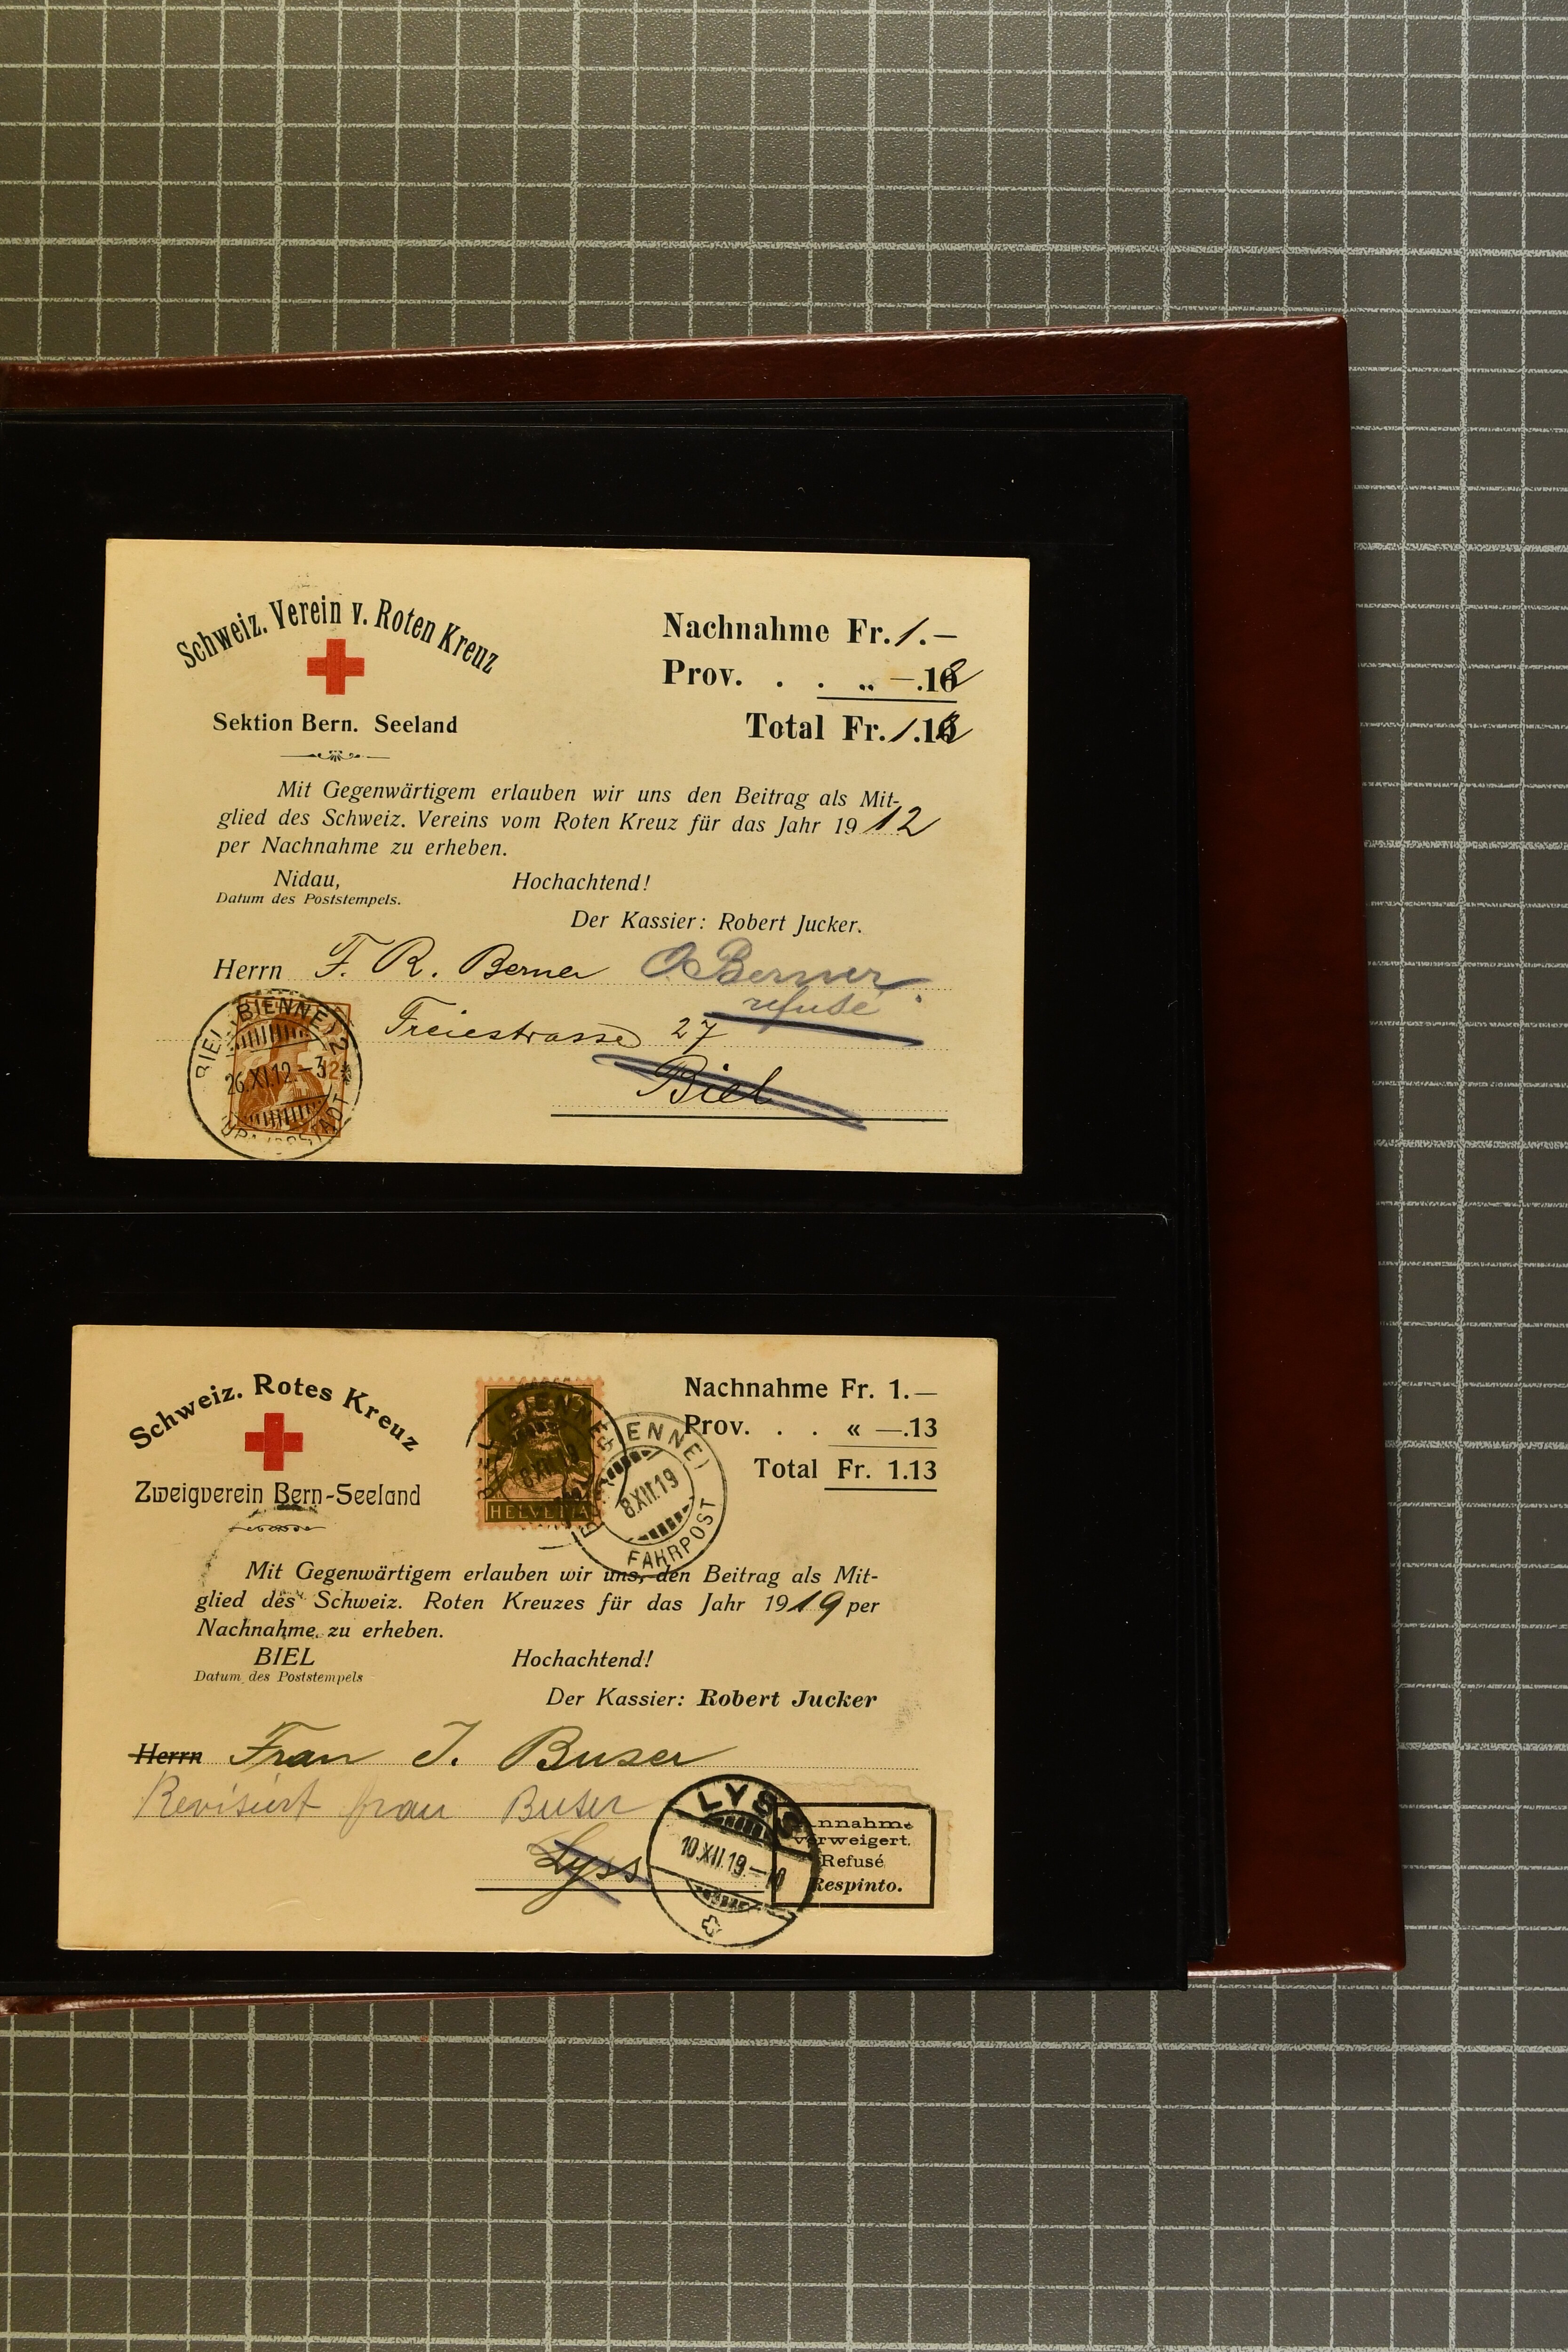 Schweiz. Verein v. Roten Kreuz
Sektion Bern. Seeland
Nachnahme Fr. 1.—
Prov. . . „ —.12
Total Fr. 1.12
Mit Gegenwärtigem erlauben wir uns den Beitrag als Mit-
glied des Schweiz. Vereins vom Roten Kreuz für das Jahr 1912
per Nachnahme zu erheben.
Nidau, Hochachtend!
Datum des Poststempels.
Der Kassier: Robert Jucker.
Herrn F. R. Berner O Berner
refusé
Freiestrasse 27
Biel
BIEL (BIENNE) 2
26.XI.12.–3
12
Schweiz. Rotes Kreuz
Zweigverein Bern-Seeland
HELVETIA
BIEL (BIENNE)
8.XII.19
(BIENNE)
8.XII.19
FAHRPOST
Nachnahme Fr. 1.—
Prov. . . « —.13
Total Fr. 1.13
Mit Gegenwärtigem erlauben wir uns, den Beitrag als Mit-
glied des Schweiz. Roten Kreuzes für das Jahr 1919 per
Nachnahme zu erheben.
BIEL Hochachtend!
Datum des Poststempels
Der Kassier: Robert Jucker
Herrn Frau J. Buser
Revisiert frau Buser
Lyss
LYSS
10.XII.19.–10
Annahme
verweigert.
Refusé
Respinto.